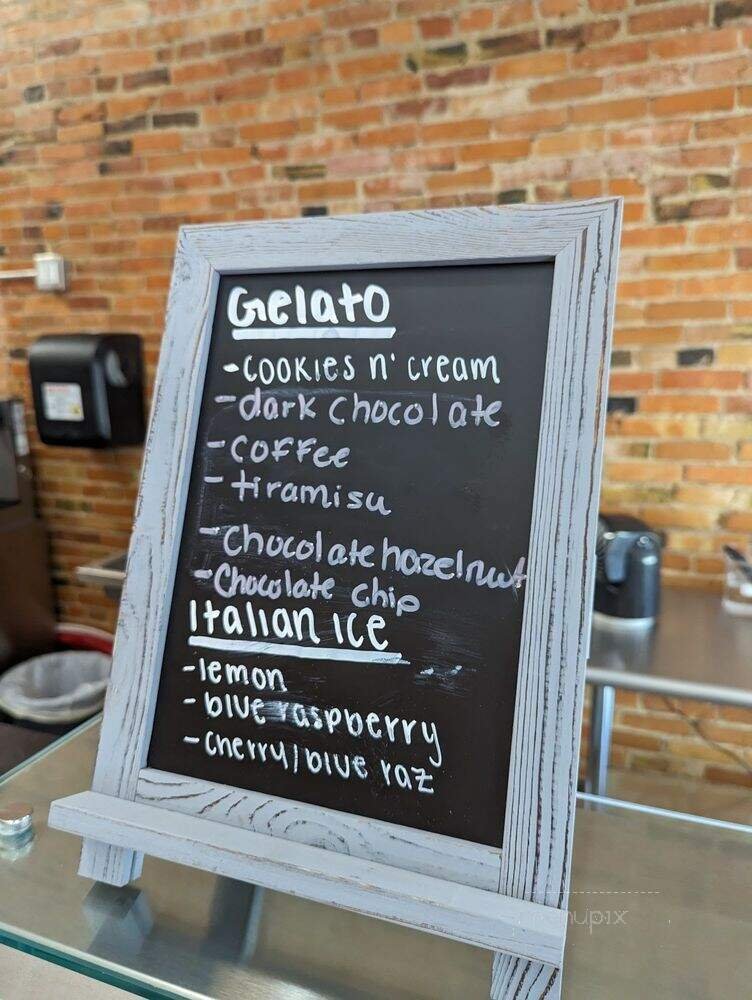 Gelato
- COOKIES n' cream
- dark chocolate
- coffee
- tiramisu
- Chocolate hazelnut
- Chocolate chip
Italian Ice
- lemon
- blue raspberry
- cherry/blue raz
menupix